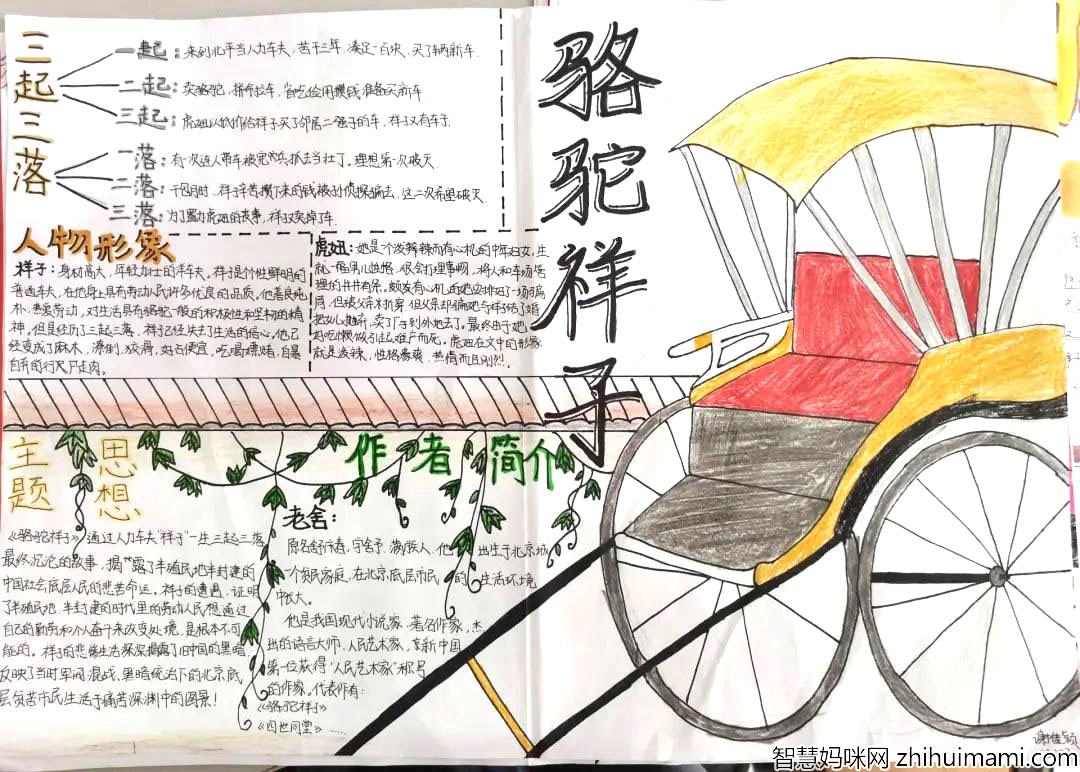 骆驼祥子
三起三落
一起：来到北平当人力车夫，苦干三年，凑足一百块，买了辆新车.
二起：卖骆驼，拼命拉车，省吃俭用攒钱准备买新车.
三起：虎妞以低价给祥子买了邻居二强子的车，祥子又有车了.
一落：有一次连人带车被宪兵抓去当壮丁。理想第一次破灭.
二落：干包月时，祥子辛苦攒下来的钱被孙侦探骗去，这二次希望破灭.
三落：为了置办虎妞的丧事，祥子又卖掉了车.
人物形象
祥子：身材高大，年轻力壮的洋车夫，祥子是个性鲜明的
普通车夫，在他身上具有劳动人民许多优良的品质。他善良纯
朴，热爱劳动，对生活具有骆驼一般的积极性和坚韧的精
神。但是经历了三起三落，祥子已经失去了生活的信心。他已
经变成了麻木，潦倒，狡猾，好占便宜，吃喝嫖赌，自暴
自弃的行尸走肉。
虎妞：她是个泼辣辣而有心机的中年妇女，生
就一副男儿性格，很会打理事明，将人和车场管
理的井井有条。颇及有心机的她安排好了一场骗
局，但被父亲扒穿
把女儿撵走，卖了厂子到外地去了。最终由于她
好吃懒做引起难产而死。虎妞在文中的形象
就是泼辣，性格豪爽，热情而且刚烈。
主题思想
《骆驼祥子》通过人力车夫"祥子"一生三起三落，
最终沉沦的故事，揭露了半殖民地半封建的
中国社会底层人民的悲苦命运。祥子的遭遇，证明
了半殖民地、半封建的时代里的劳动人民想通过
自己的勤劳和个人奋斗来改变处境，是根本不可
能的。祥子的悲惨生活深深揭露了旧中国的黑暗
反映了当时军阀混战、黑暗统治下的北京底
层贫苦市民生活于痛苦深渊中的图景！
作者简介
老舍：
原名舒庆春，字舍予，满族人，他出生于北京城
一个贫民家庭，在北京底层市民的生活环境
中长大。
他是我国现代小说家，著名作家，杰
出的语言大师、人民艺术家，是新中国
第一位获得"人民艺术家"称号
的作家，代表作有：
《骆驼祥子》
《四世同堂》……
智慧妈咪网 zhihuimami.com